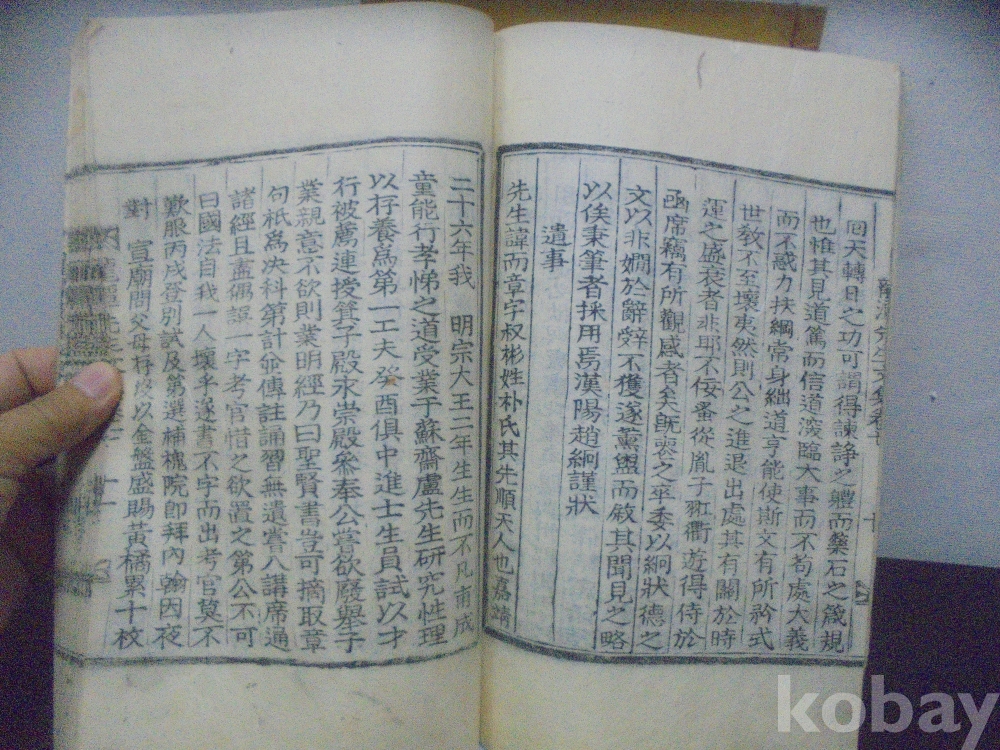 回天轉日之功可謂得諫諍之體而藥石之箴規
也惟其見道篤而信道深臨大事而不苟處大義
而不惑力扶綱常身絀道亨能使斯文有所矜式
世敎不至壞夷然則公之進退出處其有關於時
運之盛衰者非耶不佞蚤從胤子衢遊得侍於
函席竊有所觀感者矣旣喪之平委以絅狀德之
文以非嫺於辭辭不獲遂薰盥而敘其聞見之略
以俟秉筆者採用焉漢陽趙絅謹狀
遺事
先生諱而章字叔彬姓朴氏其先順天人也嘉靖
二十六年我 明宗大王二年生生而不凡甫成
童能行孝悌之道受業于蘇齋盧先生硏究性理
以存養爲第一工夫癸酉俱中進士生員試以才
行被薦連授齊子殿永崇殿參奉公嘗欲廢擧子
業親意不欲則業明經乃曰聖賢書豈可摘取章
句祇爲决科第計爺傳註誦習無遺嘗八講席通
諸經且盡偶誤一字考官惜之欲置之第公不可
曰國法自我一人壞乎遂書不字而出考官莫不
歎服丙戌登別試及第選補槐院卽拜內翰因夜
對 宣廟問父母存歿以金盤盛賜黃橘累十枚
kobay